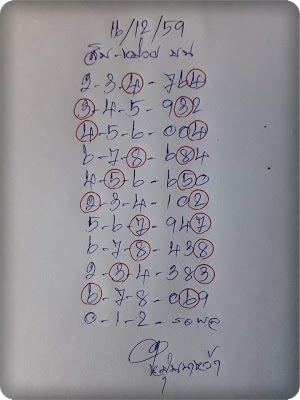 16/12/59
สิบ-หน่วย บน
2-3-4-764
3-4-5-932
4-5-6-004
6-7-8-684
4-5-6-650
2-3-4-102
5-6-7-947
6-7-8-438
2-3-4-383
6-7-8-069
0-1-2-รอผล